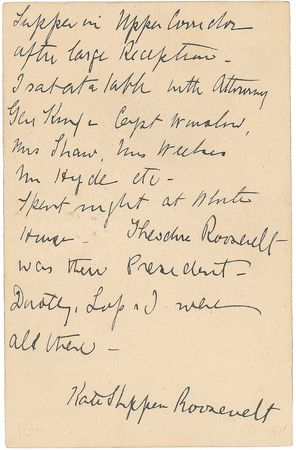 Supper in Upper Corridor
after large Reception -
I sat at a table with Attorney
Gen Knox Capt Winslow,
Mrs Shaw, Mrs Weekes
Mr Hyde etc -
Spent night at White
House - Theodore Roosevelt
was then President -
Dorothy, Lop & I were
all there -
Kate Shippen Roosevelt